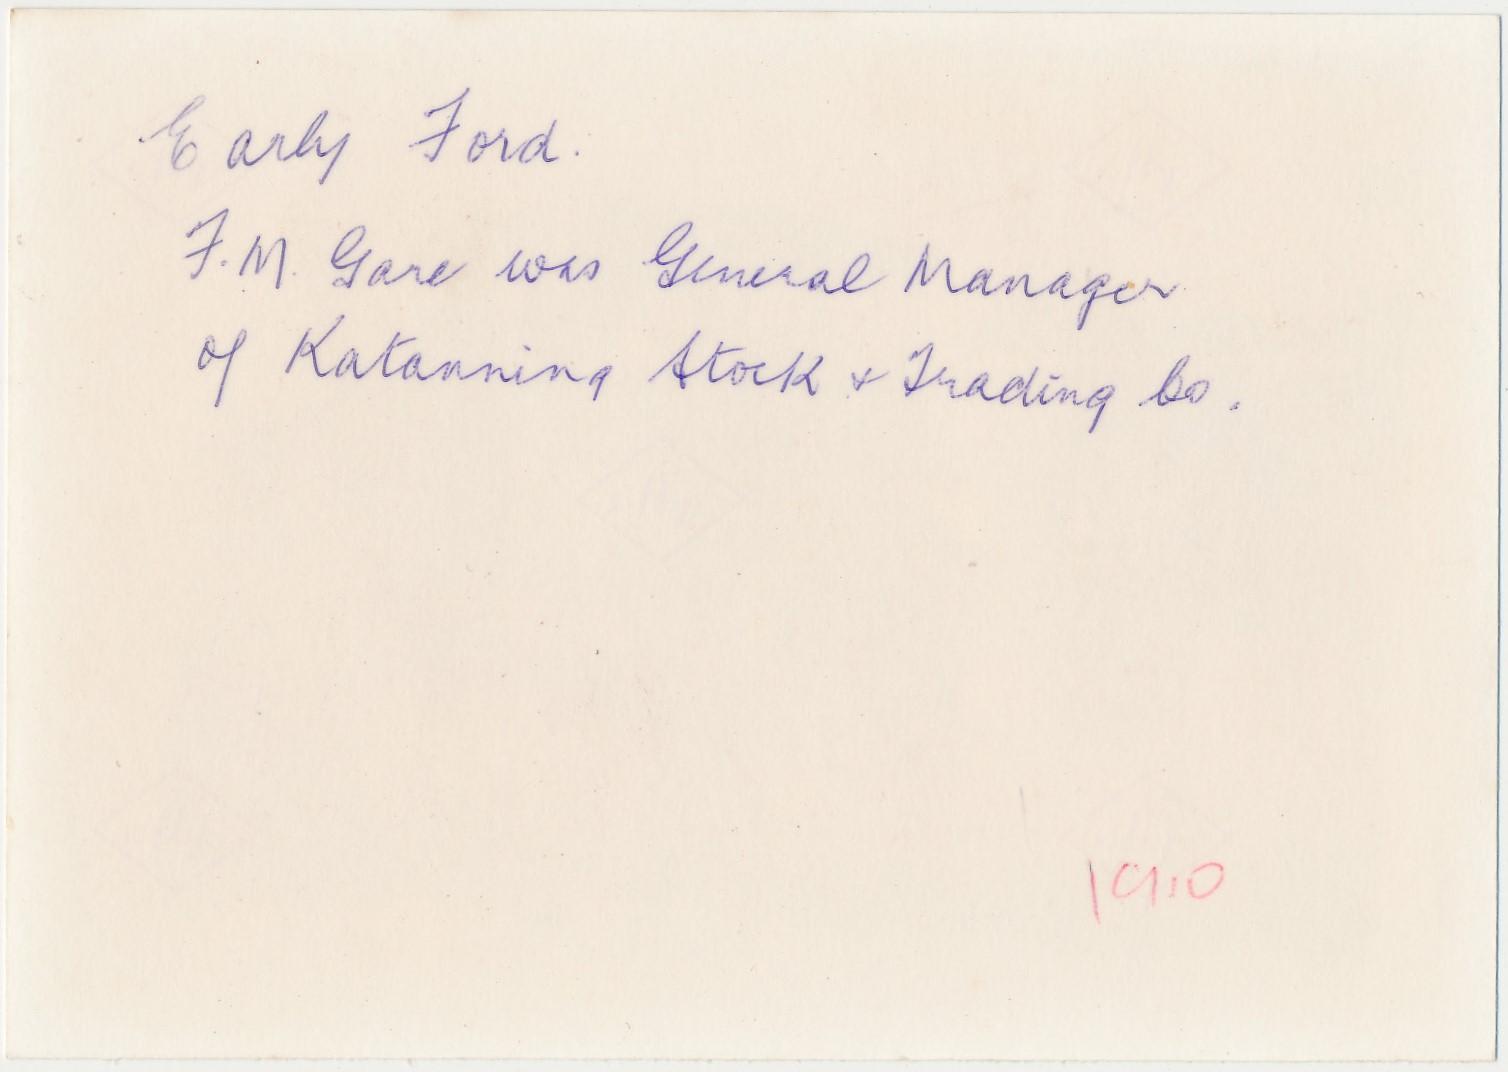 Early Ford.
F.M. Gare was General Manager
of Katanning Stock & Trading Co.
1910